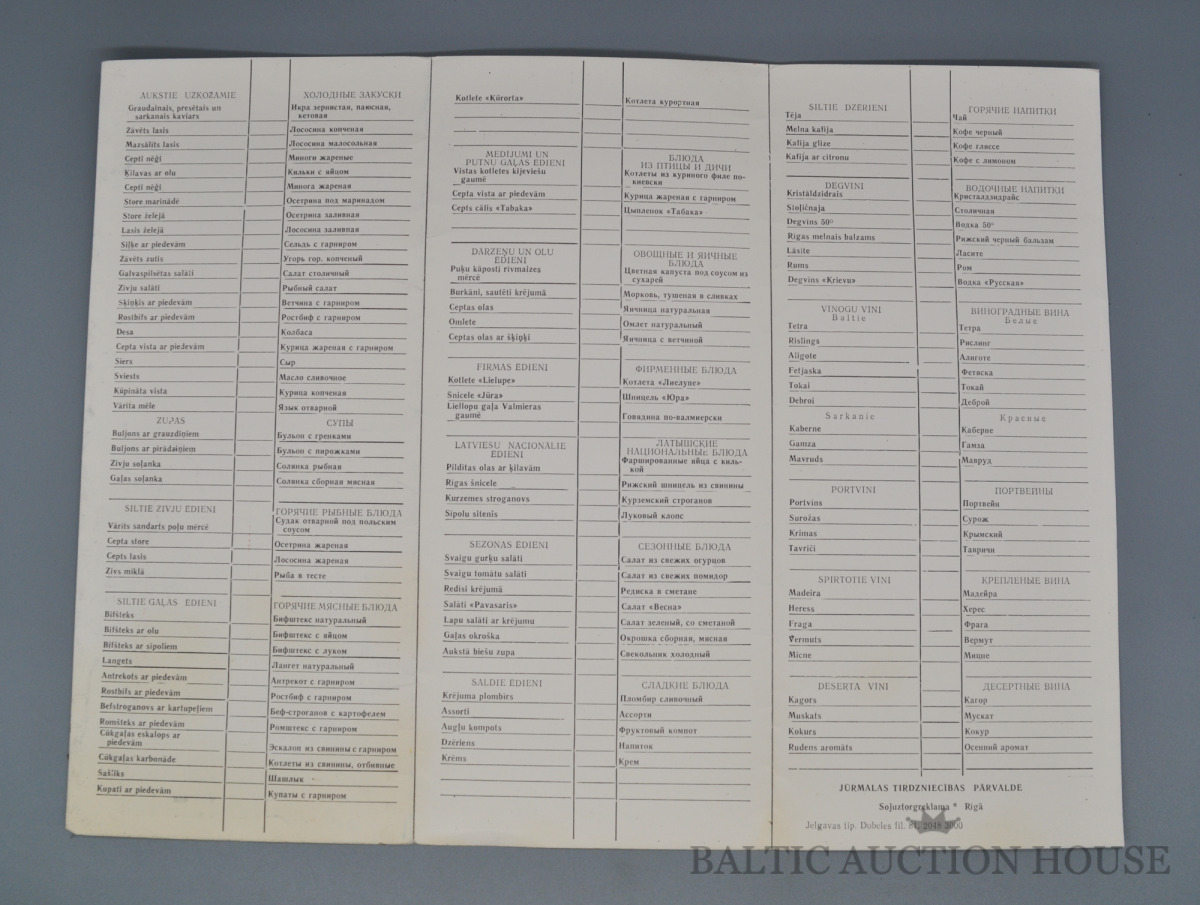 AUKSTIE UZKOŽAMIE
Graudainais, presētais un
sarkanais kaviārs
Žāvēts lasis
Mazsālīts lasis
Cepti nēģi
Ķilavas ar olu
Cepti nēģi
Store marinādē
Store želejā
Lasis želejā
Siļķe ar piedevām
Žāvēts zutis
Galvaspilsētas salāti
Zivju salāti
Šķiņķis ar piedevām
Rostbifs ar piedevām
Desa
Cepta vista ar piedevām
Siers
Sviests
Kūpināta vista
Vārīta mēle
ZUPAS
Buljons ar grauzdiņiem
Buljons ar pīrādziņiem
Zivju soļanka
Gaļas soļanka
SILTIE ZIVJU ĒDIENI
Vārīts sandarts poļu mērcē
Cepta store
Cepts lasis
Zivs mīklā
SILTIE GAĻAS ĒDIENI
Bifšteks
Bifšteks ar olu
Bifšteks ar sīpoliem
Langets
Antrekots ar piedevām
Rostbifs ar piedevām
Befstroganovs ar kartupeļiem
Romšteks ar piedevām
Cūkgaļas eskalops ar
piedevām
Cūkgaļas karbonāde
Šašliks
Kupati ar piedevām
ХОЛОДНЫЕ ЗАКУСКИ
Икра зернистая, паюсная,
кетовая
Лососина копченая
Лососина малосольная
Миноги жареные
Кильки с яйцом
Минога жареная
Осетрина под маринадом
Осетрина заливная
Лососина заливная
Сельдь с гарниром
Угорь гор. копченый
Салат столичный
Рыбный салат
Ветчина с гарниром
Ростбиф с гарниром
Колбаса
Курица жареная с гарниром
Сыр
Масло сливочное
Курица копченая
Язык отварной
СУПЫ
Бульон с гренками
Бульон с пирожками
Солянка рыбная
Солянка сборная мясная
ГОРЯЧИЕ РЫБНЫЕ БЛЮДА
Судак отварной под польским
соусом
Осетрина жареная
Лососина жареная
Рыба в тесте
ГОРЯЧИЕ МЯСНЫЕ БЛЮДА
Бифштекс натуральный
Бифштекс с яйцом
Бифштекс с луком
Лангет натуральный
Антрекот с гарниром
Ростбиф с гарниром
Беф-строганов с картофелем
Ромштекс с гарниром
Эскалоп из свинины с гарниром
Котлеты из свинины, отбивные
Шашлык
Купаты с гарниром
Kotlete «Kūrorta»
MEDĪJUMI UN
PUTNU GAĻAS ĒDIENI
Vistas kotletes kijeviešu
gaumē
Cepta vista ar piedevām
Cepts cālis «Tabaka»
DĀRZEŅU UN OLU
ĒDIENI
Puķu kāposti rīvmaizes
mērcē
Burkāni, sautēti krējumā
Ceptas olas
Omlete
Ceptas olas ar šķiņķi
FIRMAS ĒDIENI
Kotlete «Lielupe»
Šnicele «Jūra»
Liellopu gaļa Valmieras
gaumē
LATVIEŠU NACIONĀLIE
ĒDIENI
Pildītas olas ar ķilavām
Rīgas šnicele
Kurzemes stroganovs
Sīpolu sitenis
SEZONAS ĒDIENI
Svaigu gurķu salāti
Svaigu tomātu salāti
Redīsi krējumā
Salāti «Pavasaris»
Lapu salāti ar krējumu
Gaļas okroška
Aukstā biešu zupa
SALDIE ĒDIENI
Krējuma plombīrs
Assorti
Augļu kompots
Dzēriens
Krēms
Котлета курортная
БЛЮДА
ИЗ ПТИЦЫ И ДИЧИ
Котлеты из куриного филе по-
киевски
Курица жареная с гарниром
Цыпленок «Табака»
ОВОЩНЫЕ И ЯИЧНЫЕ
БЛЮДА
Цветная капуста под соусом из
сухарей
Морковь, тушеная в сливках
Яичница натуральная
Омлет натуральный
Яичница с ветчиной
ФИРМЕННЫЕ БЛЮДА
Котлета «Лиелупе»
Шницель «Юра»
Говядина по-валмиерски
ЛАТЫШСКИЕ
НАЦИОНАЛЬНЫЕ БЛЮДА
Фаршированные яйца с киль-
кой
Рижский шницель из свинины
Курземский строганов
Луковый клопс
СЕЗОННЫЕ БЛЮДА
Салат из свежих огурцов
Салат из свежих помидор
Редиска в сметане
Салат «Весна»
Салат зеленый, со сметаной
Окрошка сборная, мясная
Свекольник холодный
СЛАДКИЕ БЛЮДА
Пломбир сливочный
Ассорти
Фруктовый компот
Напиток
Крем
SILTIE DZĒRIENI
Tēja
Melna kafija
Kafija glize
Kafija ar citronu
DEGVĪNI
Kristāldzidrais
Stoļičnaja
Degvīns 50°
Rīgas melnais balzams
Lāsīte
Rums
Degvīns «Krievu»
VĪNOGU VĪNI
Baltie
Tetra
Rislings
Aligote
Fetjaska
Tokai
Debroi
Sarkanie
Kaberne
Gamza
Mavruds
PORTVĪNI
Portvīns
Surožas
Krimas
Tavriči
SPIRTOTIE VĪNI
Madeira
Heress
Fraga
Vermuts
Micne
DESERTA VĪNI
Kagors
Muskats
Kokurs
Rudens aromāts
ГОРЯЧИЕ НАПИТКИ
Чай
Кофе черный
Кофе гляссе
Кофе с лимоном
ВОДОЧНЫЕ НАПИТКИ
Кристалдзидрайс
Столичная
Водка 50°
Рижский черный бальзам
Ласите
Ром
Водка «Русская»
ВИНОГРАДНЫЕ ВИНА
Белые
Тетра
Рислинг
Алиготе
Фетяска
Токай
Деброй
Красные
Каберне
Гамза
Мавруд
ПОРТВЕЙНЫ
Портвейн
Сурож
Крымский
Тавричи
КРЕПЛЕНЫЕ ВИНА
Мадейра
Херес
Фрага
Вермут
Мицне
ДЕСЕРТНЫЕ ВИНА
Кагор
Мускат
Кокур
Осенний аромат
JŪRMALAS TIRDZNIECĪBAS PĀRVALDE
Sojuztorgreklama * Rīgā
Jelgavas tip. Dobeles fil. 2048 2000
BALTIC AUCTION HOUSE